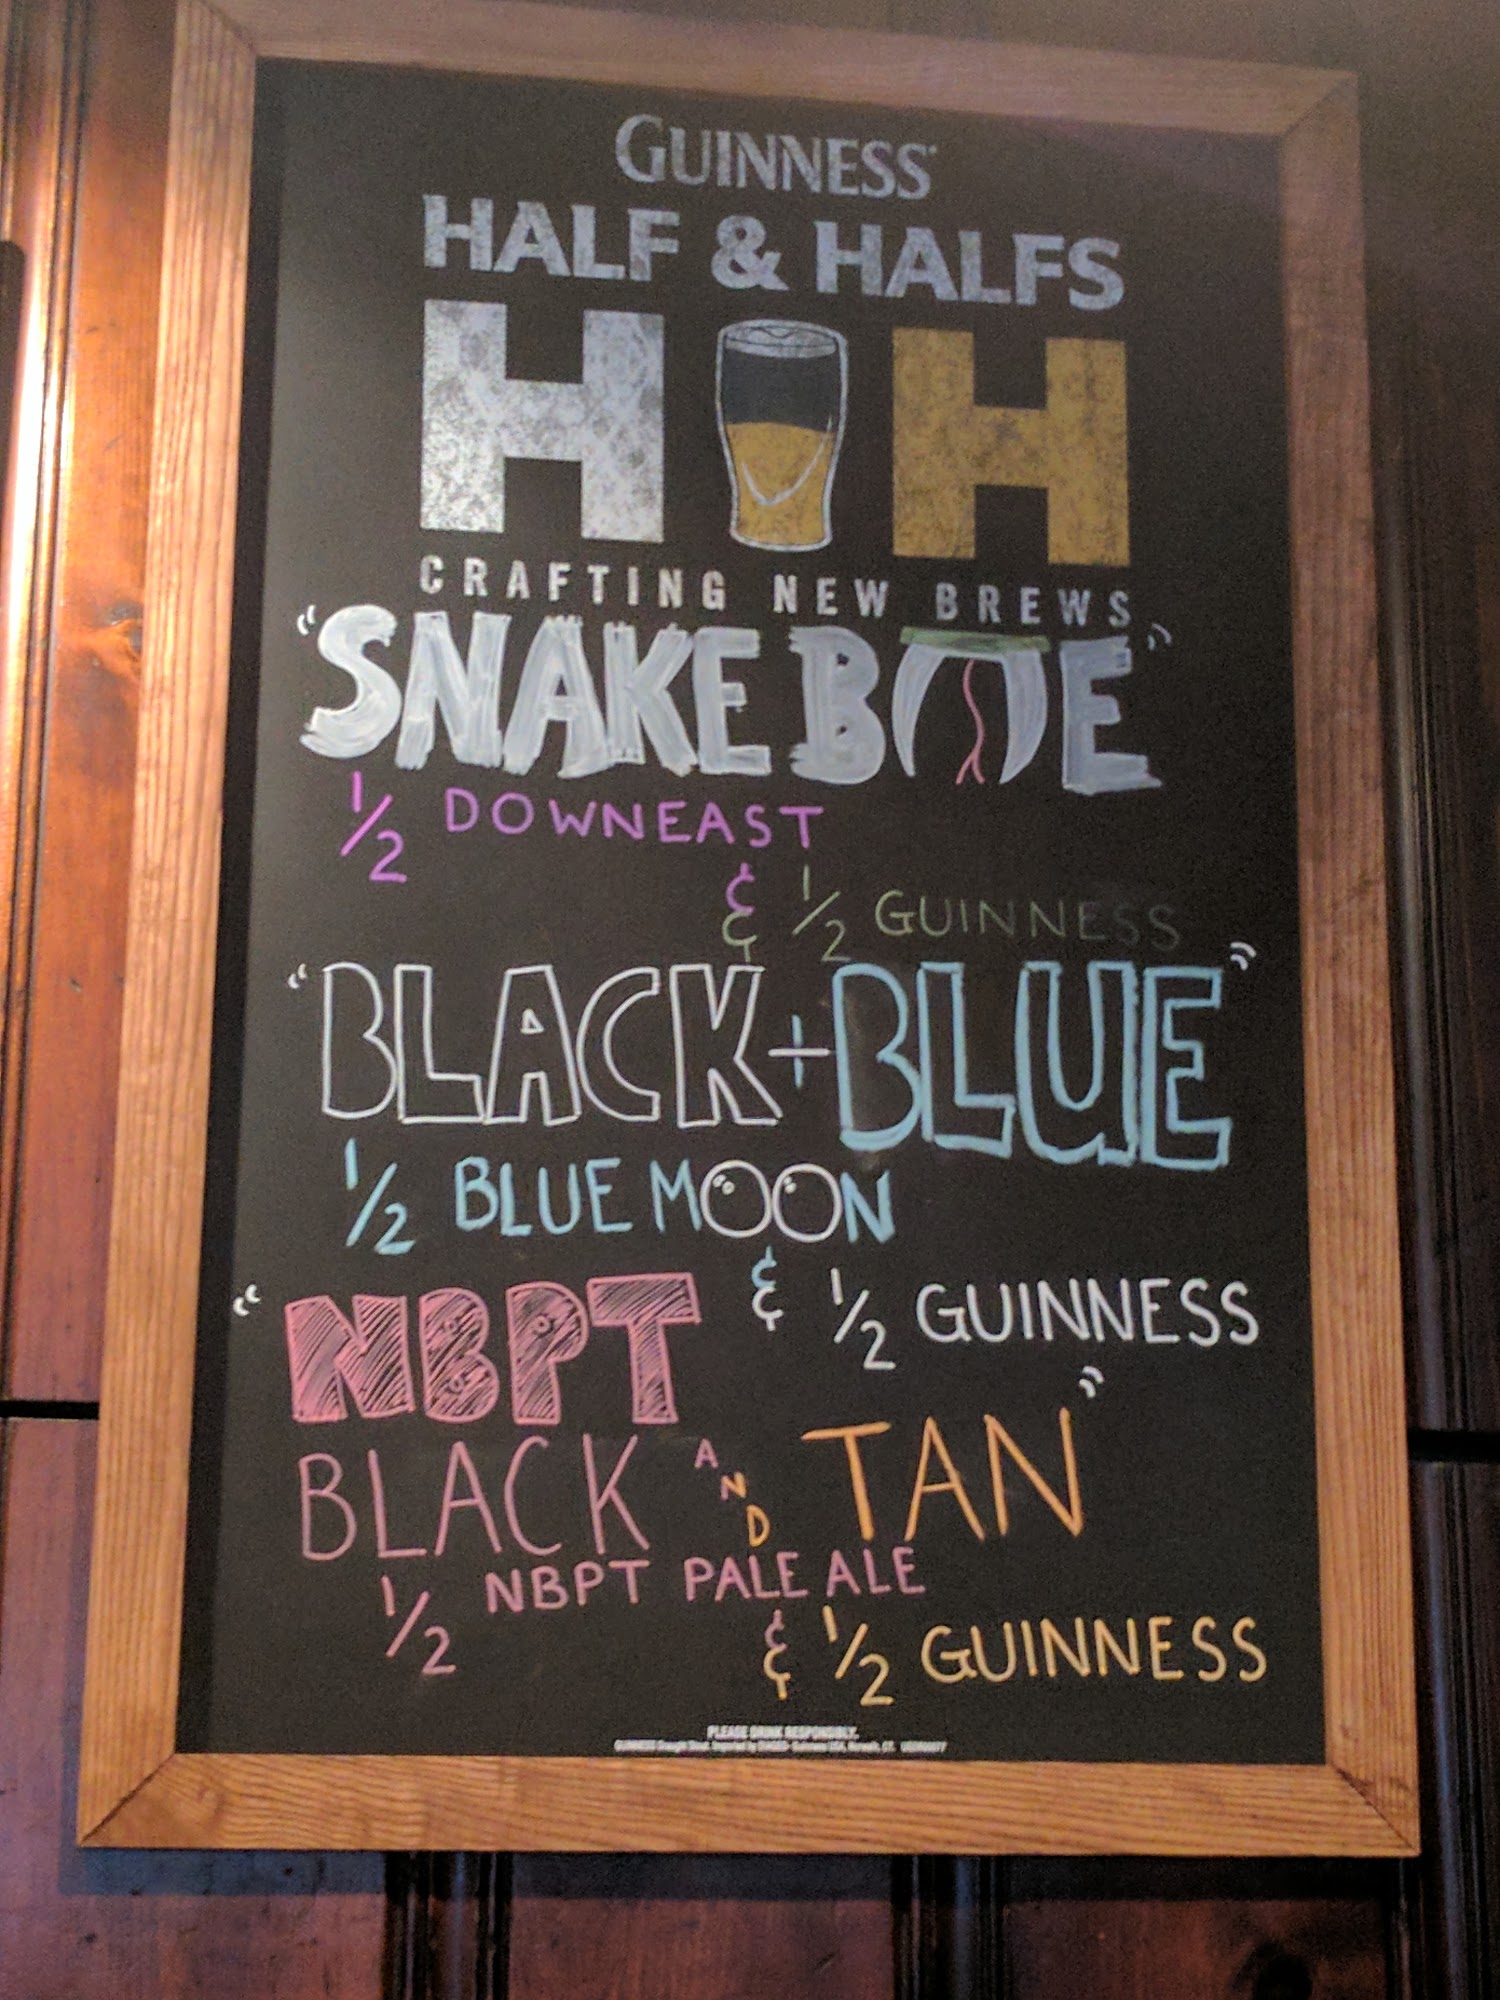 GUINNESS
HALF & HALFS
H H
CRAFTING NEW BREWS
"SNAKE BITE"
1/2 DOWNEAST
& 1/2 GUINNESS
"BLACK + BLUE"
1/2 BLUE MOON
& 1/2 GUINNESS
"NBPT
BLACK AND TAN"
1/2 NBPT PALE ALE
& 1/2 GUINNESS
PLEASE DRINK RESPONSIBLY.
GUINNESS Draught Stout. Imported by Guinness USA, Norwalk, CT.